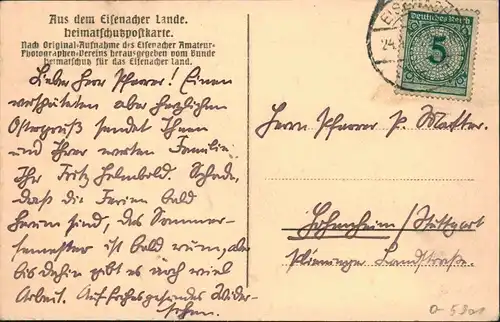 Aus dem Eisenacher Lande.
Heimatschutzpostkarte.
Nach Original-Aufnahme des Eisenacher Amateur-
Photographen-Vereins herausgegeben vom Bunde
Heimatschutz für das Eisenacher Land.
Lieber Herr Pfarrer! Einen
verspäteten aber herzlichen
Ostergruß sendet Ihnen
und Ihrer werten Familie
Ihr Fritz Helmbold. Schade,
daß die Ferien bald
herum sind, das Sommer-
semester ist bald rum, aber
bis dahin gibt es noch viel
Arbeit. Auf frohes gesundes Wieder-
sehen.
EISENACH
24.
Deutsches Reich
5
Herrn Pfarrer P. Matter.
Hohenheim/Stuttgart
Plieninger Landstraße.
0-5901